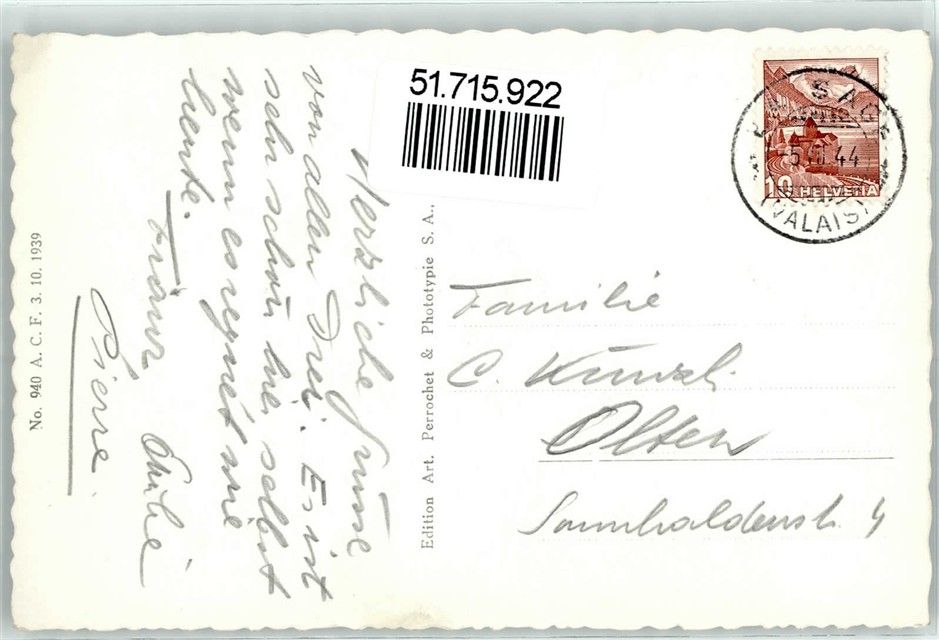 51.715.922
SAGE
5. 44
(VALAIS)
10 HELVETIA
Herzliche Grüsse
von allen Drei. Es ist
sehr schön hie, selbst
wenn es regnet wie
heute.
Pierre
Familie
C. Künzli
Olten
Sonnhaldenstr. 4
Edition Art. Perrochet & Phototypie S. A.,
No. 940 A. C. F. 3. 10. 1939